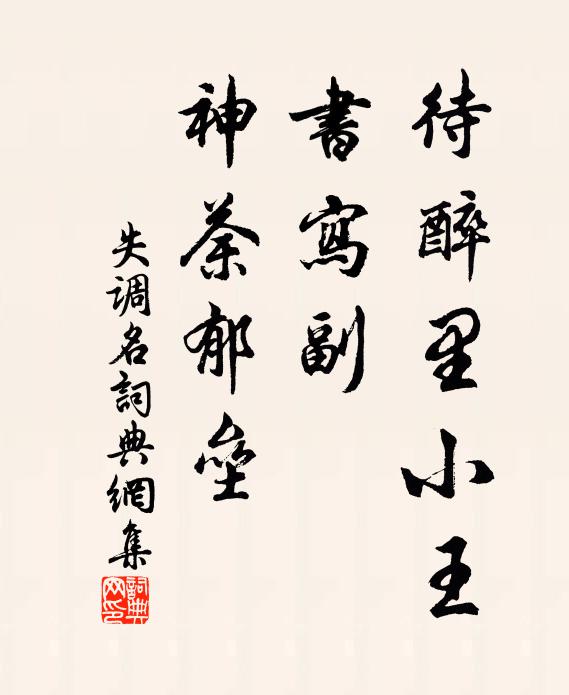 待醉里小王
書寫副
神荼郁壘
失调名詞典網集
詞典网印